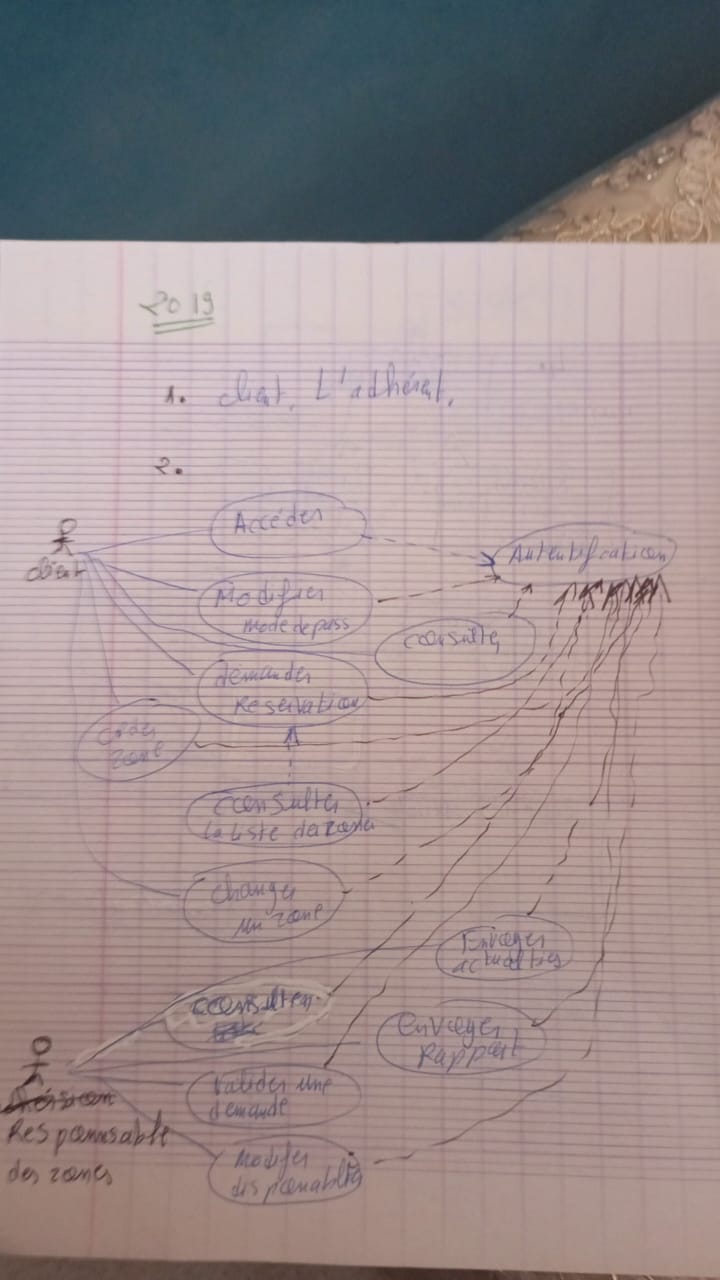 2019
1. client, L'adhérent.
2.
Accéder
Autentification
client
Modifier
mode de pass
consulter
demander
Reservation
zone
consulter
la liste de zone
changer
un zone
Envoyer
consulter
Envoyer
Rappart
valider une
demande
Responnsable
des zones
Modifer